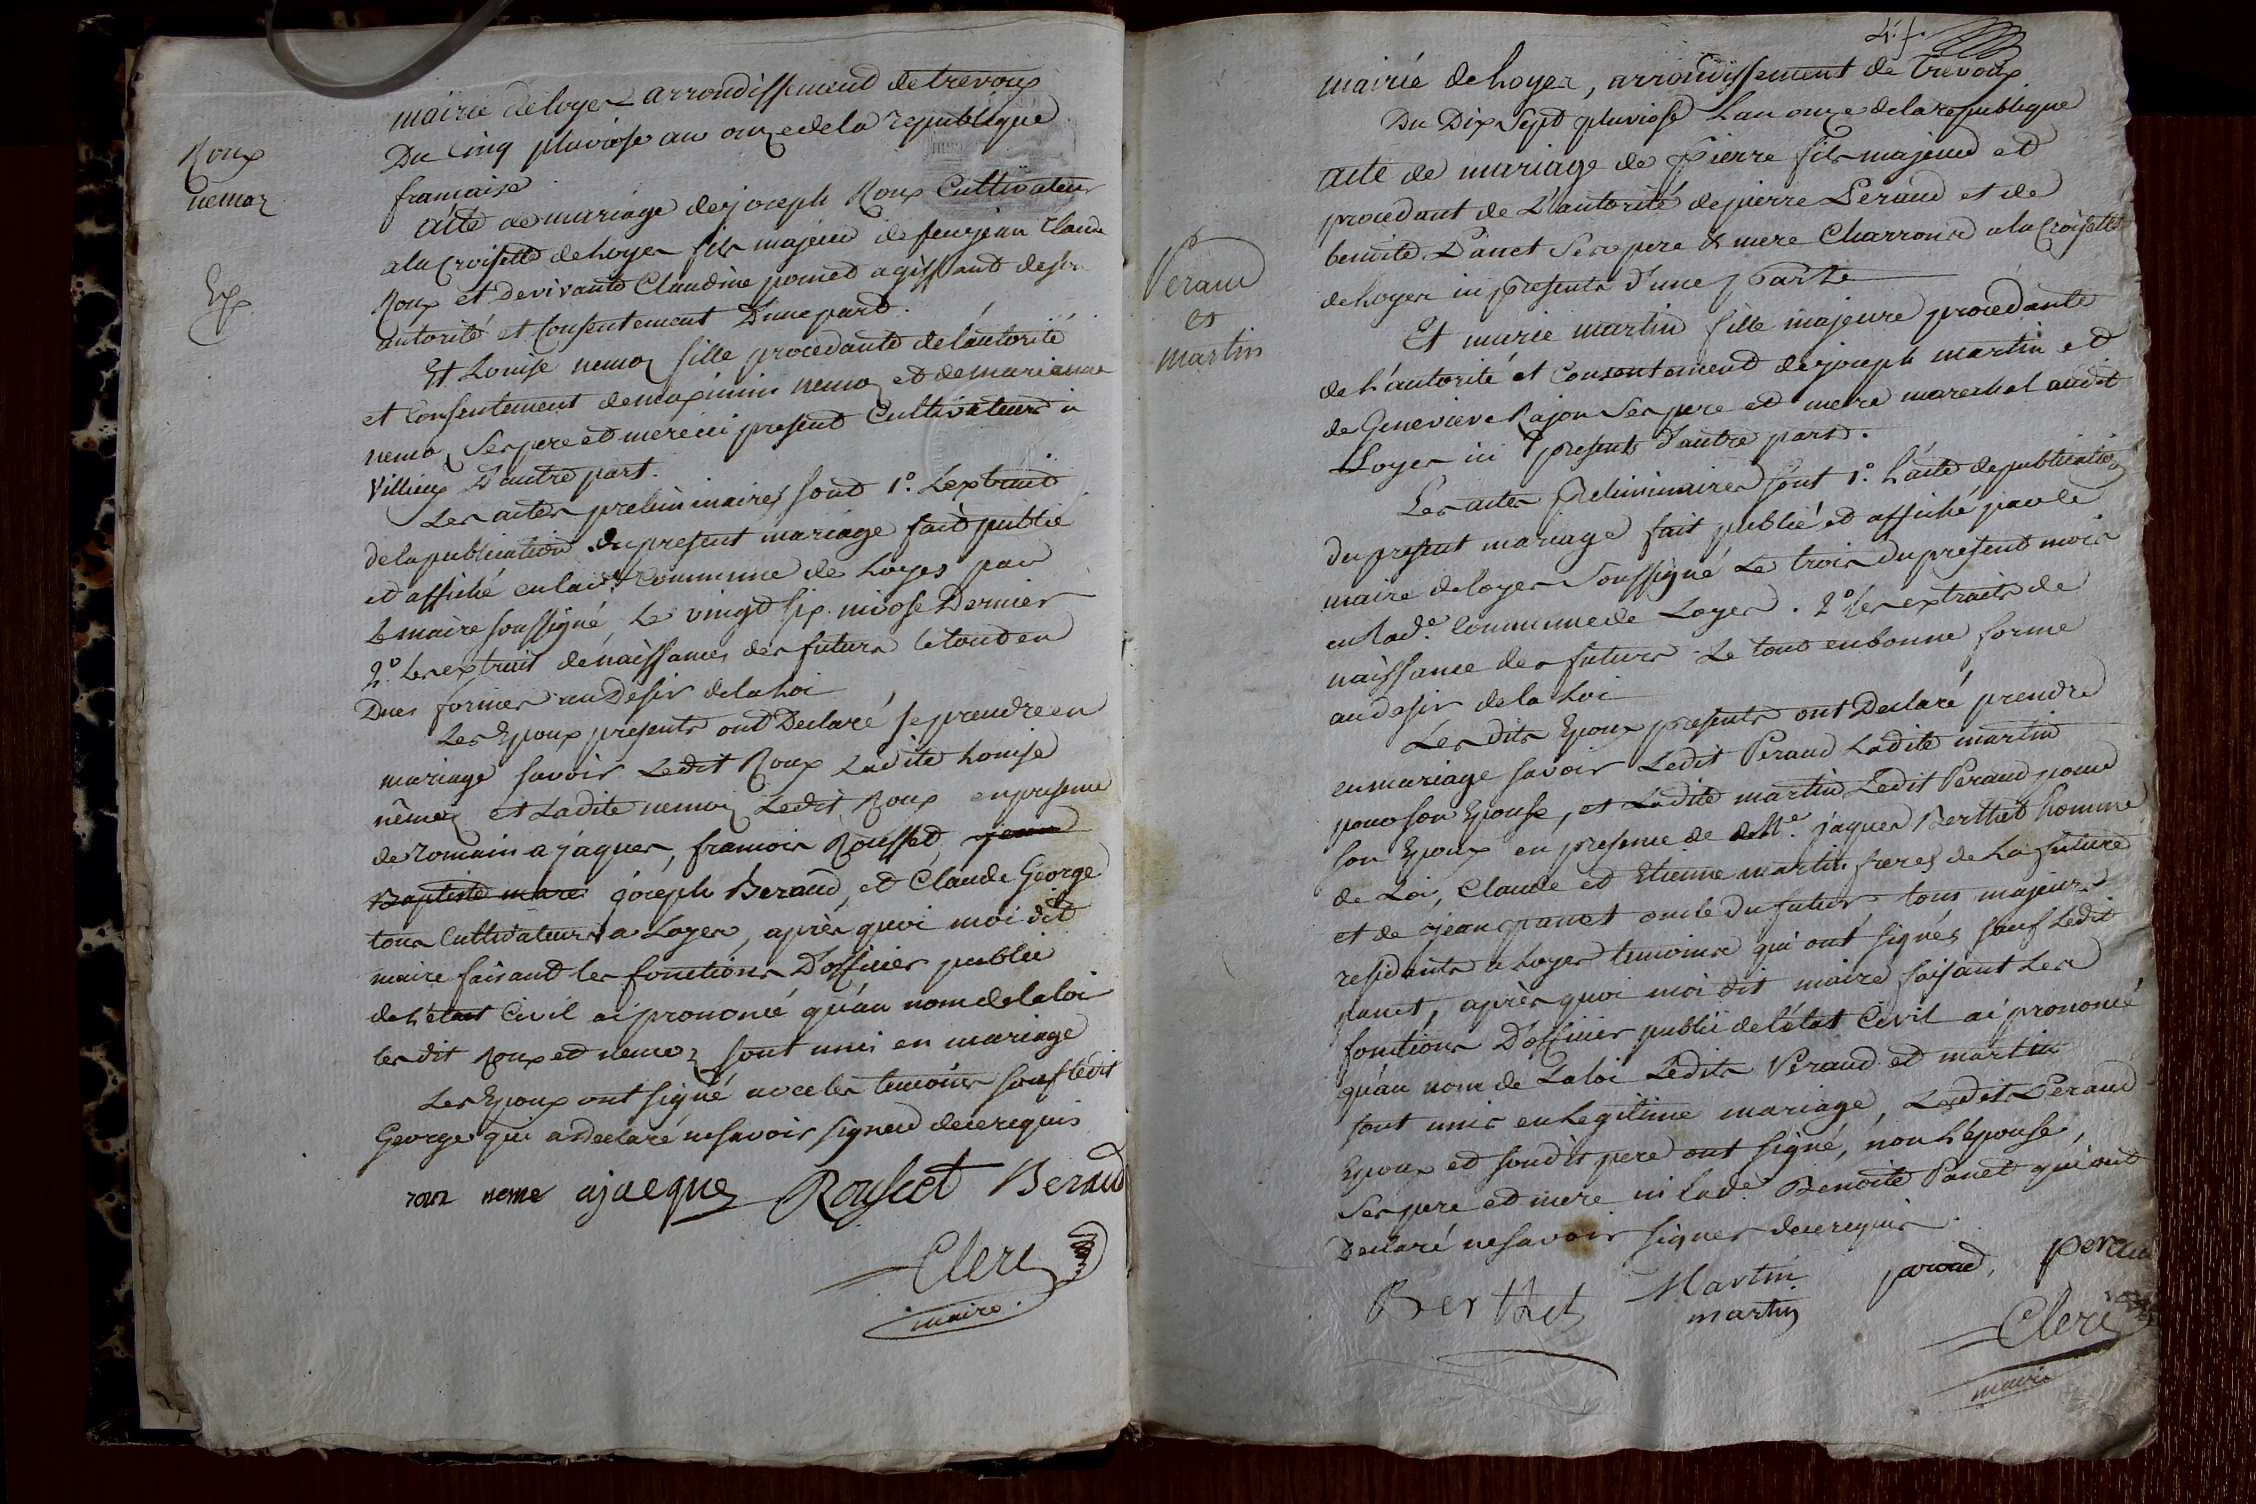 Roux
nemoz
Ex.
mairie de loyes arrondissement de trevoux
Du Cinq pluviose an onze de la republique
francaise
Acte de mariage de joseph Roux Cultivateur
a la Croisette de Loyes fils majeur de feu jean Claude
Roux et de vivante Claudine poncet agissant de son
autorité et Consentement D'une part.
Et Louise nemoz fille procedante de l'autorité
et Consentement de maximin nemoz et de marianne
nemoz Ses pere et mere ici present Cultivateurs a
Villieux D'autre part.
Les actes preliminaires sont 1°. L'extrait
de la publication du present mariage fait publié
et affiché en lad.e Commune de Loyes par
Le maire soussigné Le vingt six nivose Dernier
2°. Les extrait de naissances des futurs le tout en
Dues formes au Desir de la Loi
Les Epoux presents ont Declaré se prendre en
mariage savoir Ledit Roux Ladite Louise
nemoz et Ladite nemoz Ledit Roux en presence
de Romain ajaques, francois Rousset, jean
Baptiste joseph Beraud, et Claude George
tous Cultivateurs a Loyes, après quoi moi dit
maire faisant les fonctions D'officier public
de L'état Civil ai prononcé qu'au nom de la loi
les dit Roux et nemoz sont unis en mariage
Les Epoux ont signé avec les temoins sauf ledit
George qui a Declaré ne savoir signer de ce requis
roux neme ajacques Rousset Beraud
Clerc
maire
47.
mairie de Loyes, arrondissement de Trevoux
Du Dix Sept pluviose L'an onze de la republique
Acte de mariage de Pierre fils majeur et
procedant de L'autorité de pierre Peraud et de
benoite Panet Ses pere & mere Charrons a la Croisette
de Loyes ici presents d'une Part
Peraud
et
martin
Et marie martin fille majeure procedante
de L'autorité et Consentement de joseph martin et
de Genevieve Rajon Ses pere et mere marechal audit
Loyes ici presents d'autre part.
Les actes Preliminaires sont 1°. L'acte de publication
du present mariage fait publié et affiché par le
maire de loyes soussigné Le trois du présent mois
en Lad.e Commune de Loyes. 2° Les extraits de
naissance des futurs. Le tout en bonne forme
au desir de la Loi
Les dits Epoux presents ont Declaré prendre
en mariage savoir Ledit Peraud Ladite martin
pour son Epouse, et Ladite martin Ledit Peraud pour
son Epoux en presence de jaques Berthet homme
de Loi, Claude et Etienne martin freres de La future
et de jean panet oncle du futur tous majeurs
residants a Loyes temoins qui ont signés sauf Ledit
panet, après quoi moi dit maire faisant Les
fonctions D'officier public de l'état Civil ai prononcé
qu'au nom de La loi Ledits Peraud et martin
sont unis en Legitime mariage, Lesdits Peraud
Epoux et sondit pere ont signé, non L'épouse,
Ses pere et mere ni Lad.e Benoite Panet qui ont
Declaré ne savoir signer de ce requis.
Berthet Martin peraud
martin
Clerc
maire